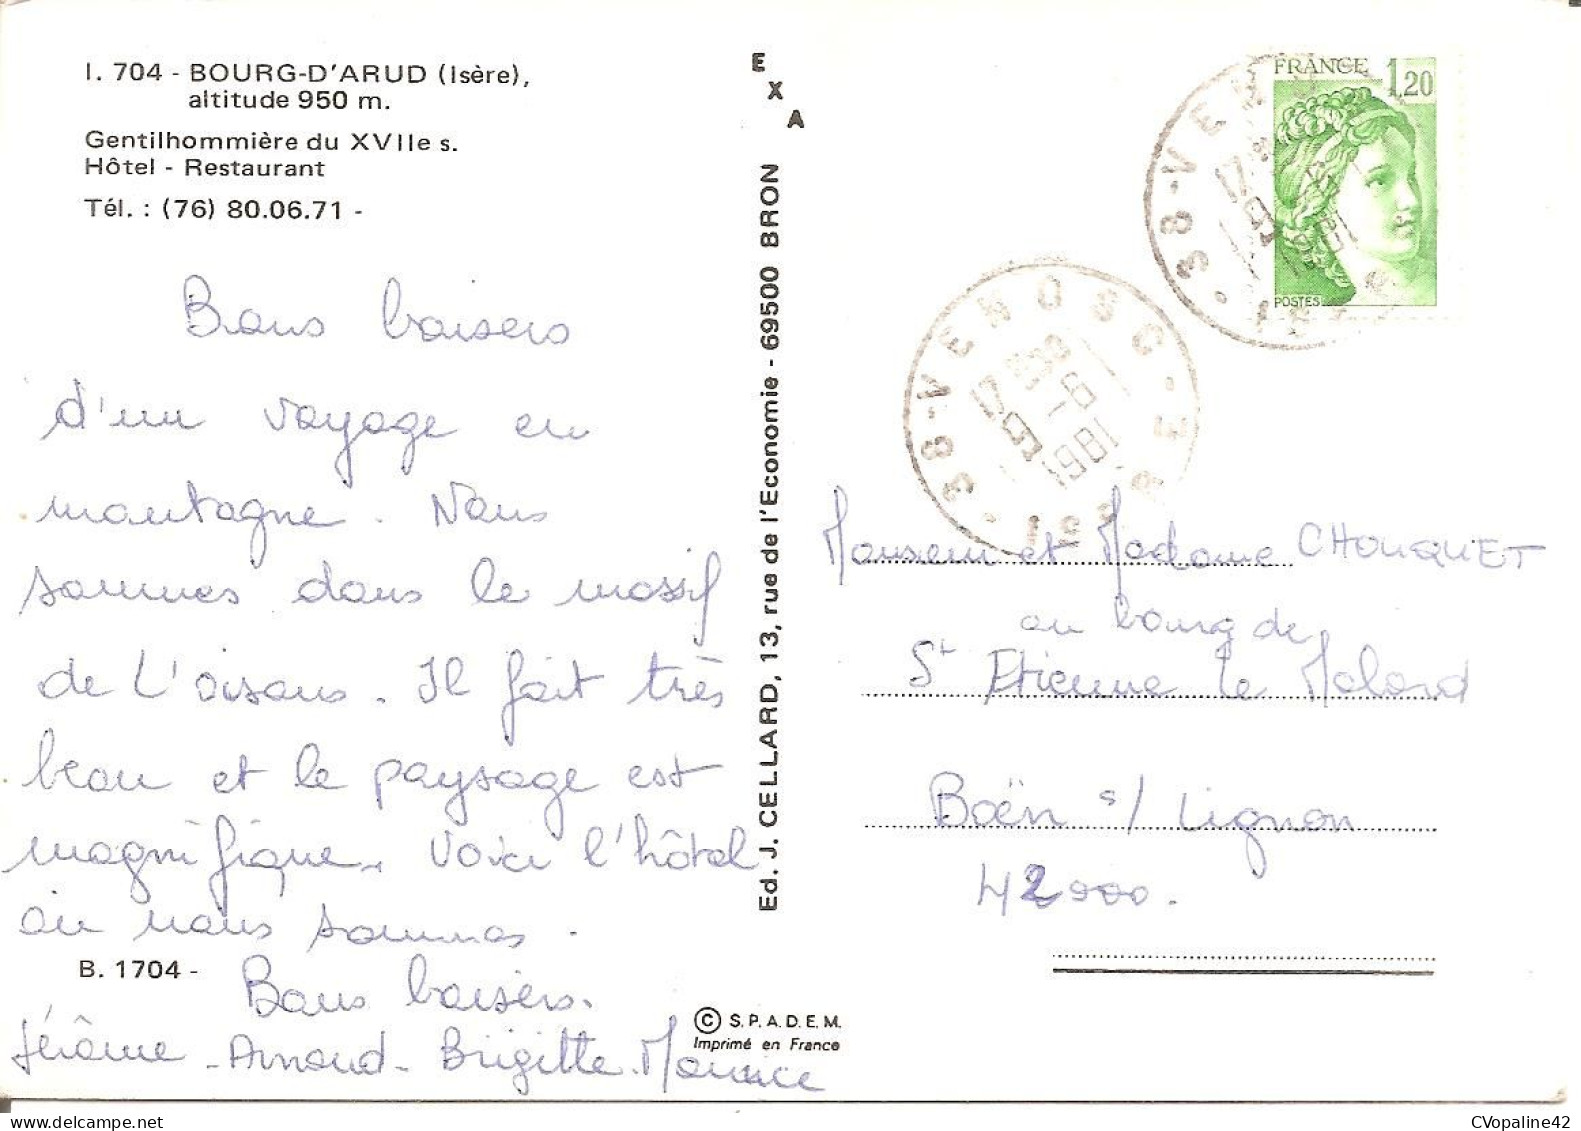 I. 704 - BOURG-D'ARUD (Isère),
altitude 950 m.
Gentilhommière du XVIIe s.
Hôtel - Restaurant
Tél. : (76) 80.06.71 -
Bons baisers
d'un voyage en
montagne. Nous
sommes dans le massif
de L'oisans. Il fait très
beau et le paysage est
magnifique. Voici l'hôtel
où nous sommes.
B. 1704 -
Bons baisers.
Jérôme - Arnaud - Brigitte. Maurice
EXA
Ed. J. CELLARD, 13, rue de l'Economie - 69500 BRON
© S.P.A.D.E.M.
Imprimé en France
FRANCE 1,20
POSTES
38-VENOSC-ISERE
17H30
9-6
1981
Monsieur et Madame CHOUQUET
au bourg de
St Etienne le Molard
Boën s/ Lignon
42000.
CVopaline42